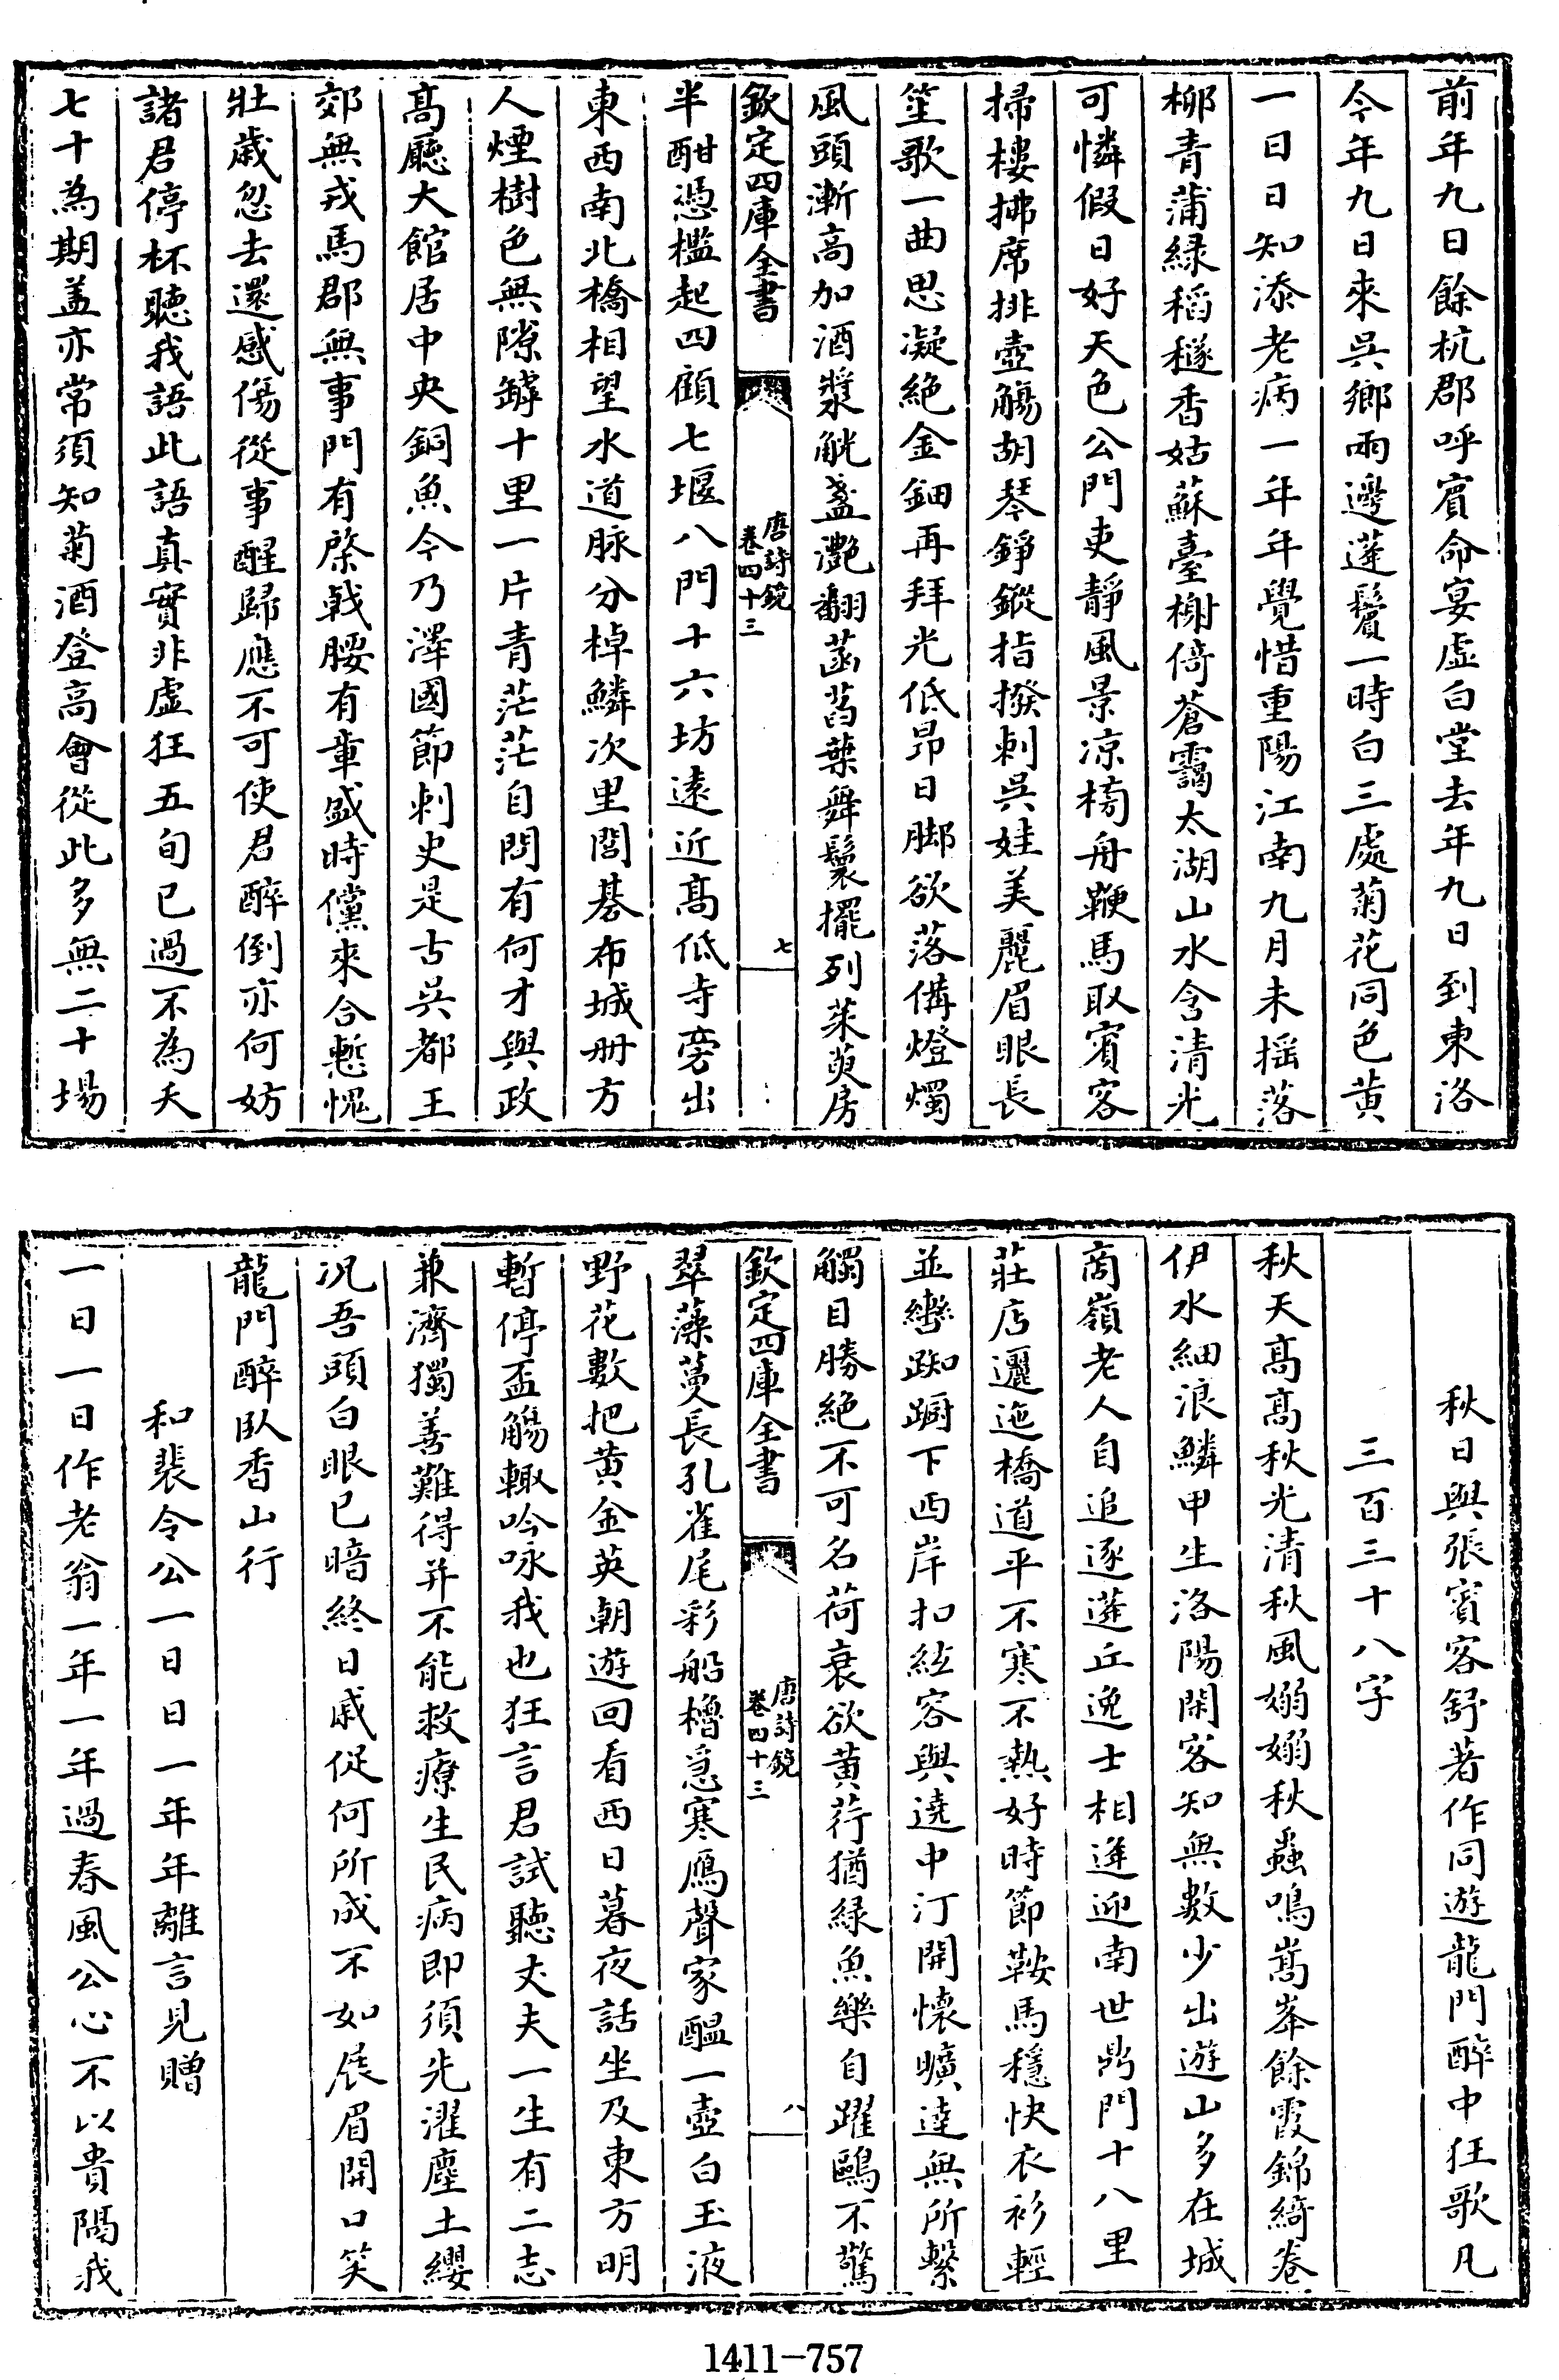 前年九日餘杭郡呼賓命宴虚白堂去年九日到東洛
今年九日來吳鄉兩邊蓬鬢一時白三處菊花同色黃
一日日知添老病一年年覺惜重陽江南九月未揺落
栁青蒲緑稻穟香姑蘇臺榭倚蒼靄太湖山水含清光
可憐假日好天色公門吏靜風景凉榜舟鞭馬取賓客
掃樓拂席排壺觴胡琴錚鏦指撥刺吳娃美麗眉眼長
笙歌一曲思凝絶金鈿再拜光低昂日脚欲落備燈燭
風頭漸高加酒漿觥盞灔翻菡萏葉舞鬟擺列茱萸房
欽定四庫全書
唐詩鏡
卷四十三
七
半酣憑檻起四顧七堰八門十六坊遠近髙低寺旁出
東西南北橋相望水道脉分棹鱗次里閭碁布城册方
人煙樹色無隙罅十里一片青茫茫自問有何才與政
髙廳大館居中央銅魚今乃澤國節刺史是古吳都王
郊無戎馬郡無事門有棨戟腰有章盛時儻來合慙愧
壯嵗忽去還感傷從事醒歸應不可使君醉倒亦何妨
諸君停杯聽我語此語真實非虚狂五旬已過不為夭
七十為期盖亦常須知菊酒登高會從此多無二十場
秋日與張賓客舒著作同遊龍門醉中狂歌凡
三百三十八字
秋天髙髙秋光清秋風嫋嫋秋蟲鳴嵩峯餘霞錦綺卷
伊水細浪鱗甲生洛陽閑客知無數少出遊山多在城
商嶺老人自追逐蓬丘逸士相逢迎南世鼎門十八里
莊店邐迤橋道平不寒不熱好時節鞍馬穩快衣衫輕
並轡踟蹰下西岸扣舷容與遶中汀開懐曠達無所繫
觸目勝絶不可名荷衰欲黄荇猶緑魚樂自躍鷗不驚
欽定四庫全書
唐詩鏡
卷四十三
八
翠藻蔓長孔雀尾彩船櫓急寒鴈聲家醖一壺白玉液
野花數把黄金英朝遊回看西日暮夜話坐及東方明
暫停盃觴輙吟咏我也狂言君試聽丈夫一生有二志
兼濟獨善難得并不能救療生民病即須先濯塵土纓
况吾頭白眼已暗終日戚促何所成不如展眉開口笑
龍門醉臥香山行
和裴令公一日日一年年雜言見贈
一日一日作老翁一年一年過春風公心不以貴隔我
1411-757